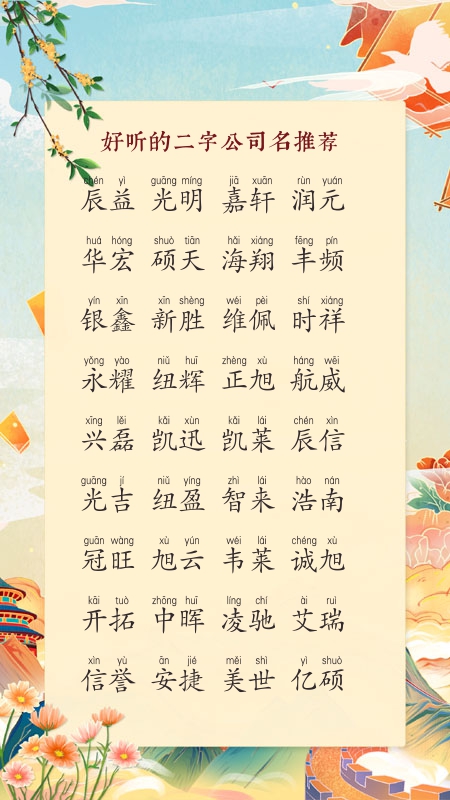 好听的二字公司名推荐
chén yì guāng míng jiā xuān rùn yuán
辰益 光明 嘉轩 润元
huá hóng shuò tiān hǎi xiáng fēng pín
华宏 硕天 海翔 丰频
yín xīn xīn shèng wéi pèi shí xiáng
银鑫 新胜 维佩 时祥
yǒng yào niǔ huī zhèng xù háng wēi
永耀 纽辉 正旭 航威
xīng lěi kǎi xùn kǎi lái chén xìn
兴磊 凯迅 凯莱 辰信
guāng jí niǔ yíng zhì lái hào nán
光吉 纽盈 智来 浩南
guān wàng xù yún wéi lái chéng xù
冠旺 旭云 韦莱 诚旭
kāi tuò zhōng huī líng chí ài ruì
开拓 中晖 凌驰 艾瑞
xìn yù ān jié měi shì yì shuò
信誉 安捷 美世 亿硕